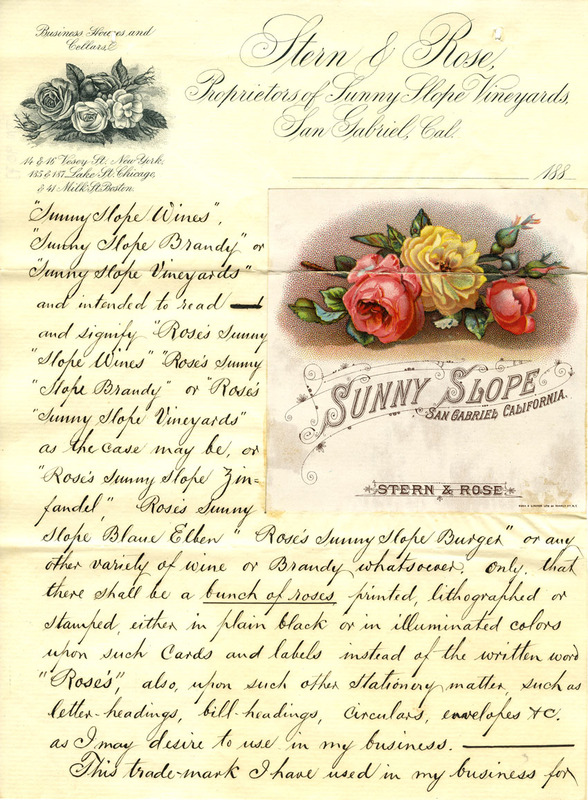 Business Houses and
Cellars,
14 & 16 Vesey St. New York.
185 & 187 Lake St. Chicago,
& 41 Milk St. Boston.
Stern & Rose,
Proprietors of Sunny Slope Vineyards,
San Gabriel, Cal.
188
"Sunny Slope Wines",
"Sunny Slope Brandy" or
"Sunny Slope Vineyards"
and intended to read
and signify "Rose's Sunny
Slope Wines" "Rose's Sunny
"Slope Brandy" or "Rose's
"Sunny Slope Vineyards"
as the case may be, or
"Rose's Sunny Slope Zin-
fandel", Rose's Sunny
Slope Blaue Elben" "Rose's Sunny Slope Burger" or any
other variety of wine or Brandy whatsoever, only, that
there shall be a bunch of roses printed, lithographed or
stamped, either in plain black or in illuminated colors
upon such Cards and labels instead of the written word
"Rose's", also, upon such other Stationery matter, such as
letter-headings, bill-headings, circulars, envelopes &c.
as I may desire to use in my business.
This trade-mark I have used in my business for
SUNNY SLOPE
SAN GABRIEL CALIFORNIA.
STERN & ROSE